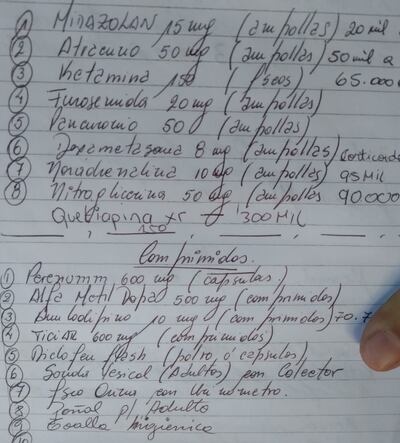 ① MIDAZOLAN 15 mg (ampollas) 20 mil
② Atracurio 50 mg (ampollas) 50 mil a
③ Ketamina 150 ( Fscos) 65.000
④ Furosemida 20 mg (ampollas)
⑤ Pancuronio 50 (ampollas)
⑥ Dexametasona 8 mg (ampollas)
⑦ Noradrenalina 10 mg (ampollas) 95 Mil
⑧ Nitroglicerina 50 mg (ampollas 90000
Quetiapina xr 150 300 Mil
Comprimidos.
① 600 mg (capsulas.)
② Alfa Metil Dopa 500 mg (comprimidos)
③ Amlodipino 10 mg (comprimidos) 70.7
④ 600 mg (comprimidos)
⑤ Diclofen flash (polvo ó capsulas)
⑥ Sonda Vesical (Adultos) con Colector
⑦ Fsco Orina con Urinómetro.
⑧ Pañal p/ Adulto
⑨ Toalla higienica
⑩